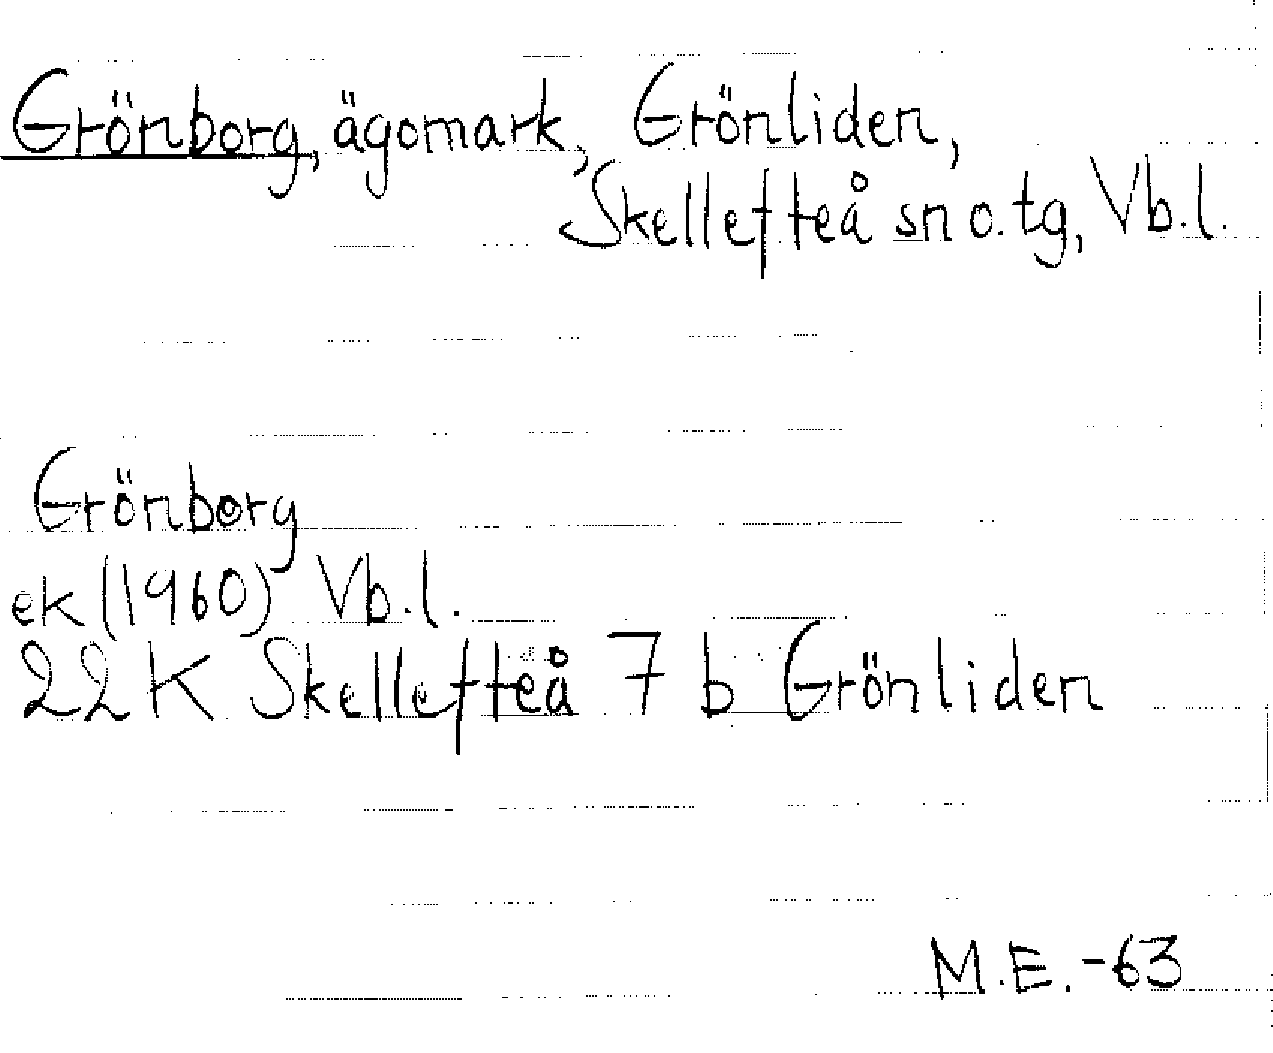 Grönborg, ägomark, Grönliden,
Skellefteå sn o. tg, Vb.l.
Grönborg
ek (1960) Vb.l.
22 K Skellefteå 7 b Grönliden
M.E. -63